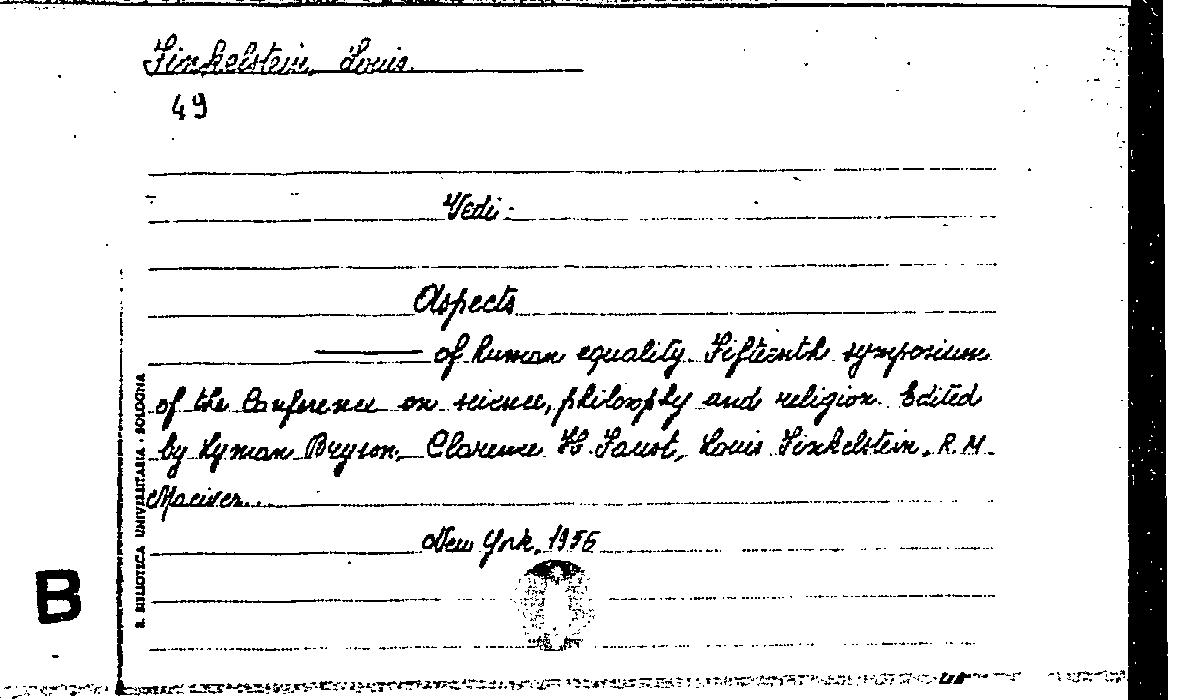 Finkelstein, Louis.
49
Vedi:
Aspects
——— of human equality. Fifteenth symposium
of the Conference on science, philosophy and religion. Edited
by Lyman Bryson, Clarence H. Faust, Louis Finkelstein, R. M.
Maciver..
New York, 1956
B. BIBLIOTECA UNIVERSITARIA - BOLOGNA
B